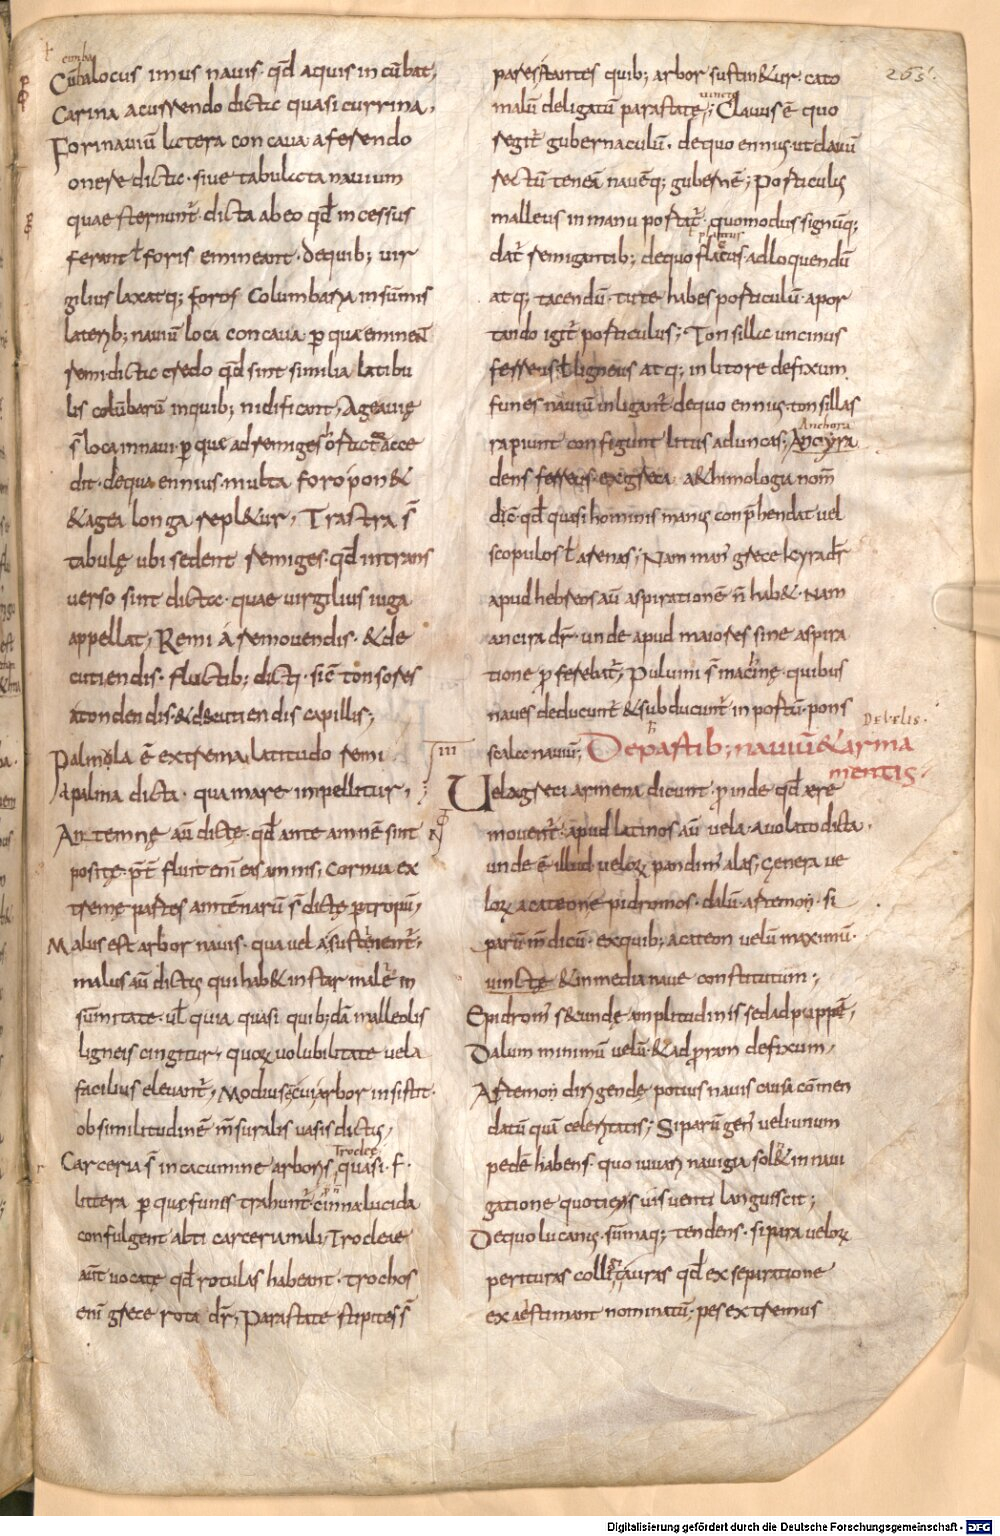 cumba
Cūbalocus imus nauis· qđ aquis incūbat;
Carina a currendo dicta quasi currina;
Forinauiū latera concaua a ferendo
onere dicta· siue tabulata nauium
quae sternunt̄· dicta ab eo qđ incessus
ferant ł foris emineant· dequib; uir
gilius laxatq; foros Columbaria insūmis
laterib; nauiū loca concaua p quae eminēt
remi dicta credo qđ sint similia latibu
lis colūbarū inquib; nidificant; Ageauię
s̄ loca innaui· p quae ad remiges ortator acce
dit· dequa ennius· multa foro pon&
&agea longa repl&ur; Trastra s̄
tabulę ubi sedent remiges· qđ in trans
uerso sint dicta· quae uirgilius iuga
appellat; Remi á remouendis· &de
cutiendis· fluctib; dicti· sic̄ tonsores
atondendis· &decutiendis capillis;
Palmola ē extrema latitudo remi
apalma dicta· qua mare inpellitur;
Antemnę aū dictę· qđ ante amnē sint
positę· p̄t̄ fluit eni eas amnis; Cornua ex
tremę partes antēnarū s̄ dictę p tropū;
Malus est arbor nauis· qua uela sustinent̄;
malus aū dictus qui hab& instar mali in
sūmitate· uł quia quasi quib;dā malleolis
ligneis cingitur· quoꝝ uolubilitate uela
facilius eleuant̄; Modius ē cui arbor insistit·
ob similitudinē m̄suralis uasis dictus;
Trocleę
Carceria s̄ in cacumine arboris, quasi· f·
littera p quę funes trahunt̄· cinna lucida
confulgent alti carceria mali; Trocleae
aūt uocatę qđ rotulas habeant· trochos
eni grece rota dr̄; Parastate stipites s̄
263·
pares stantes quib; arbor sustin&ur· cato
uincto
malū deligatū parastatę; Clauus ē quo
regit̄ gubernaculū· dequo ennius· ut clauū
rectū teneā nauēq; gubernē; Porticulus
malleus in manu portat̄· quo modus signūq;
plautus
dat̄ remigantib; dequo flatus· adloquendū
atq; tacendū· tute habes porticulū· apor
tando igit̄ porticulus; Tonsilla uncinus
ferreus ł ligneus atq; in litore defixum
funes nauiū inligant̄· dequo ennius· tonsillas
Anchora
rapiunt configunt litus aduncas; Ancyra
dens ferreus· ex greca a&himologia nom̄
dic̄· qđ quasi hominis manus conp̄hendat uel
scopulos ł arenas; Nam man̄ grece kyra dr̄
apud hebreos aū aspirationē n̄ hab&· Nam
ancira dr̄· unde apud maiores sine aspira
tione pferebat̄; Puluini s̄ machinę· quibus
naues deducunt̄ &subducunt̄ in portū· pons
scale nauiū; De partib; nauiū &arma
De uelis·
mentis·
III
Uela greci armena dicunt· proinde qđ aere
mouent̄· apud latinos aū uela· auolato dicta·
unde ē illud ueloꝝ pandim̄ alas; Genera ue
loꝝ acateone· pidromos· dalū· artemon· si
parū m̄dicū· ex quib; acateon uelū maximū·
uinctę &in media naue constitutum;
Epidrom̄ s&cundę amplitudinis sed ad puppē;
Dalum minimū uelū· &ad proram defixum;
Artemon dirigendę potius nauis causa cōmen
datū quā celeritatis; Siparū gen̄ ueli unum
pedē habens· quo iuuari nauigia sol& in naui
gatione quotiens uis uenti languiscit;
Dequo lucanus· sūmaq; tendens· sipara ueloꝝ
perituras colligit auras qđ ex separatione
ex aestimant nominatū· pes extremus
Digitalisierung gefördert durch die Deutsche Forschungsgemeinschaft - DFG